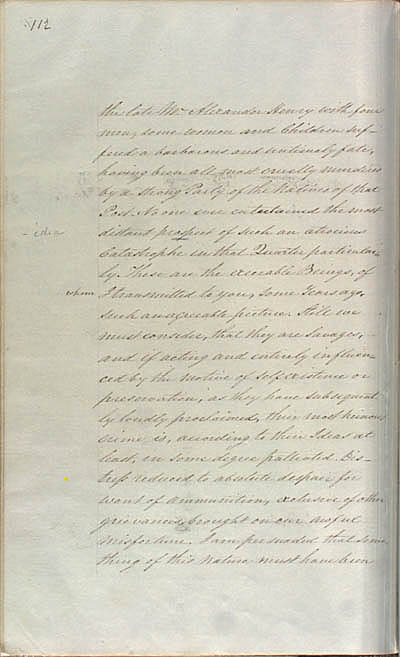 112
the late Mr. Alexander Henry with four
men, some women and Children suf-
fered a barbarous and untimely fate,
having been all most cruelly murdered
by a strong Party of the Natives of that
Post. No one ever entertained the most
- idea
distant prospect of such an atrocious
Catastrophe in that Quarter particular
ly. These are the execrable Beings, of
whom
I transmitted to you, some Years ago,
such an agreeable picture. Still we
must consider, that they are Savages,
and if acting and entirely influen
ced by the motive of self existence or
preservation, as they have subsequent
ly loudly proclaimed, their most heinous
crime is, according to their Ideas at
least, in some degree palliated. Dis-
tress reduced to absolute despair for
want of ammunition, exclusive of other
grievances, brought on our awful
misfortune. I am persuaded that some
thing of this nature must have been